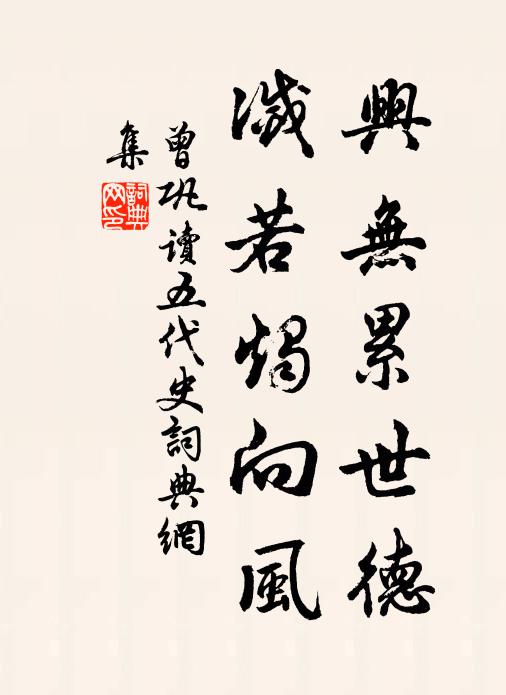 興無累世德
滅若燭向風
曾巩讀五代史詞典網
集
詞典網印